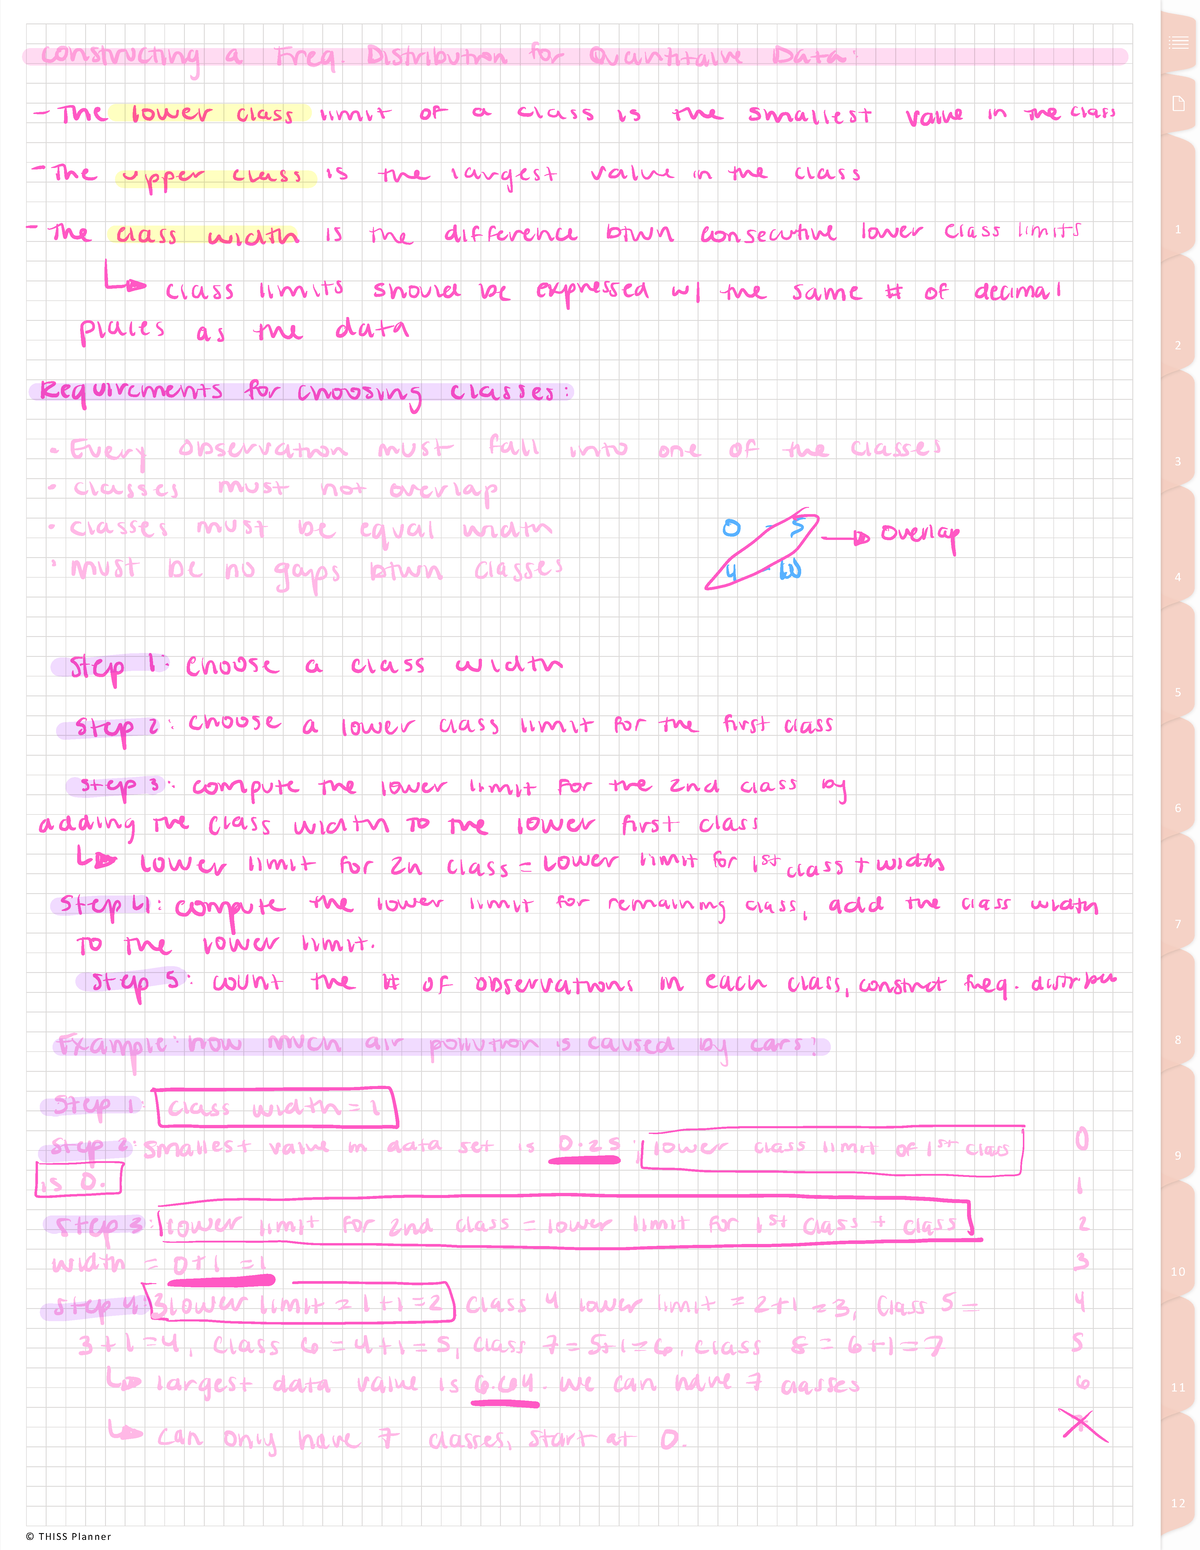 Constructing a Freq. Distribution for Quantitaive Data:
- The lower class limit of a class is the smallest value in the class
- The upper class is the largest value in the class
- The class width is the difference btwn consecutive lower class limits
↳ class limits should be expressed w/ the same # of decimal
places as the data
Requirements for choosing classes:
• Every observation must fall into one of the classes
• classes must not overlap
• classes must be equal width
• must be no gaps btwn classes
0 - 5 → overlap
4 - 10
Step 1: choose a class width
Step 2: choose a lower class limit for the first class
Step 3: compute the lower limit for the 2nd class by
adding the class width to the lower first class
↳ lower limit for 2n class = lower limit for 1st class + width
Step 4: compute the lower limit for remaining class, add the class width
to the lower limit.
Step 5: count the # of observations in each class, construct freq.
Example: how much air pollution is caused by cars?
Step 1: class width = 1
Step 2: smallest value in data set is 0.25; lower class limit of 1st class
is 0.
Step 3: lower limit for 2nd class = lower limit for 1st class + class
width = 0+1 = 1
Step 4: 3 lower limit = 1+1=2 class 4 lower limit = 2+1=3, class 5 =
3+1=4, class 6 = 4+1=5, class 7 = 5+1=6, class 8 = 6+1=7
↳ largest data value is 6.64. we can have 7 classes
↳ can only have 7 classes, start at 0.
0
1
2
3
4
5
6
1
2
3
4
5
6
7
8
9
10
11
12
© THISS Planner